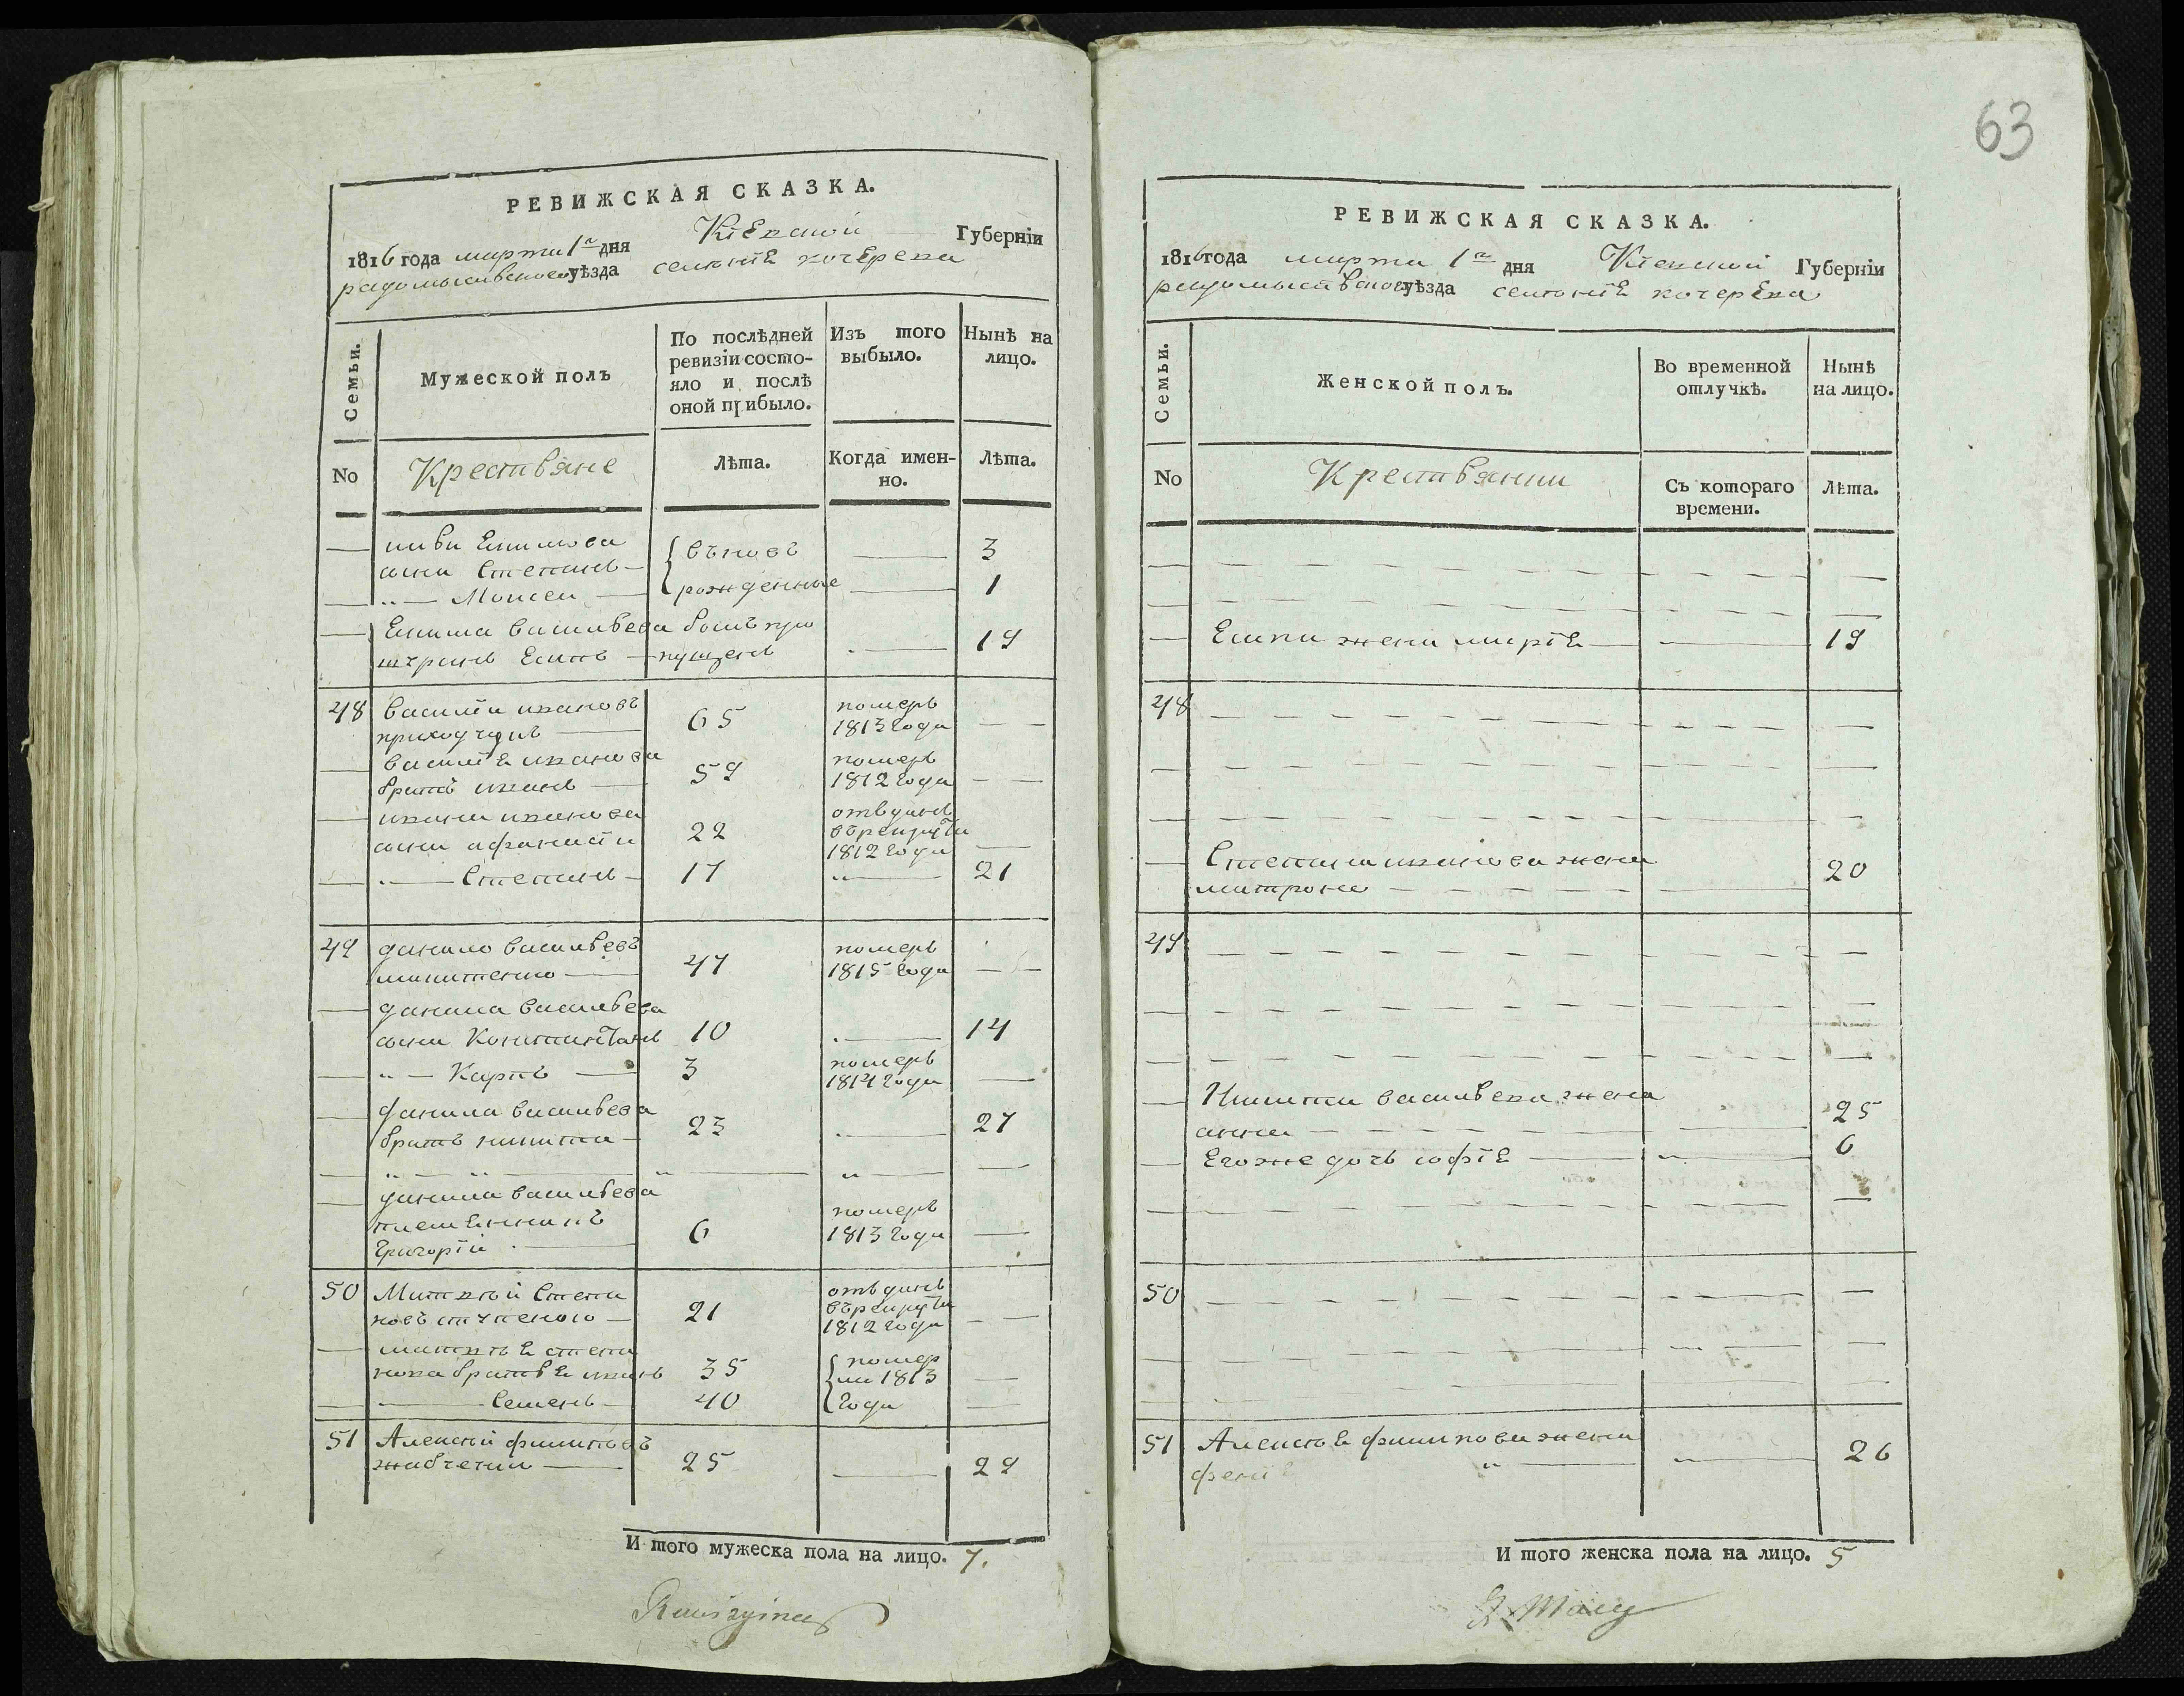 63
РЕВИЖСКАЯ СКАЗКА.
1816 года марта 1го дня Кіевской Губерніи
радомысльского уѣзда селеніе кочерева
Семьи.
Мужеской полъ
По послѣдней ревизіи состояло и послѣ оной прибыло.
Изъ того выбыло.
Нынѣ на лицо.
No
Крестьяне
Лѣта.
Когда именно.
Лѣта.
сыни Степанъ
вновь
3
Моисеи
рожденные
1
Васильева былъ про
шуринъ пущенъ 19
48 василіи ивановъ
65
померъ
1813 года
василіѣ иванова
братъ иванъ
59
померъ
1812 года
ивана иванова
сыни афанасіи
22
отъданъ
въ рекруты
1812 года
Степанъ
17
21
49 данило васильевъ
47
померъ
1815 года
данила васильева
сыни Константинъ 10
14
Карпъ
3
померъ
1814 года
данила васильева
братъ никита
23
27
данила васильева
племѣнникъ
Григорій
6
померъ
1813 года
50 Матвѣй Степа
новъ
21
отъданъ
въ рекруты
1812 года
матвѣѣ степа
нова братьѣ иванъ 35
помер
ли 1813
Семенъ
40
года
51 Алексѣй филиповъ
25
29
И того мужеска пола на лицо. 7.
РЕВИЖСКАЯ СКАЗКА.
1816 года марта 1го дня Кіевской Губерніи
радомысльского уѣзда селеніе кочерева
Семьи.
Женской полъ.
Во временной отлучкѣ.
Нынѣ на лицо.
No
Крестьянки
Съ котораго времени.
Лѣта.
жена маріѣ 19
48
Степана иванова жена
матрона
20
49
Никити васильева жена
анна
25
Егоже дочь софіѣ
6
50
51 Алексѣѣ филипова жена
26
И того женска пола на лицо. 5